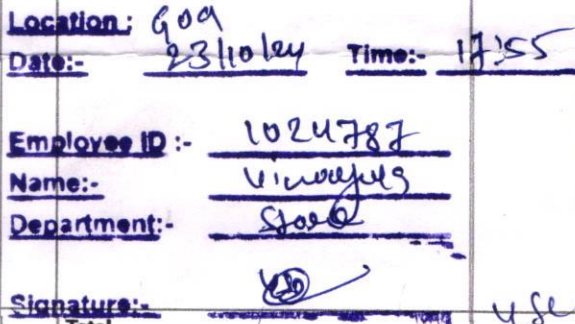 Location: Goa
Date:- 23/10/24 Time:- 17:55
Employee ID :- 1024787
Name:-
Department:- Store
Signature:-
Total